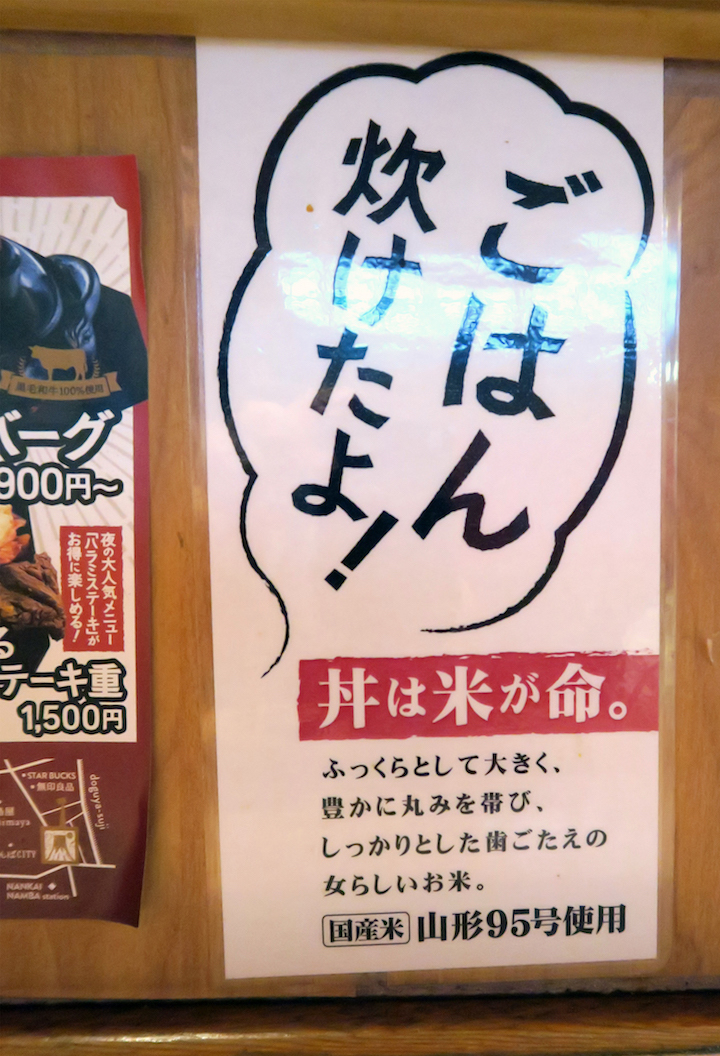 ごはん
炊けたよ!
丼は米が命。
ふっくらとして大きく、
豊かに丸みを帯び、
しっかりとした歯ごたえの
女らしいお米。
国産米 山形95号使用
黒毛和牛100%使用
バーグ
900円〜
夜の大人気メニュー
「ハラミステーキ」が
お得に楽しめる!
る
テーキ重
1,500円
STAR BUCKS
無印良品
doguya-suji
CITY
NANKAI
NAMBA station